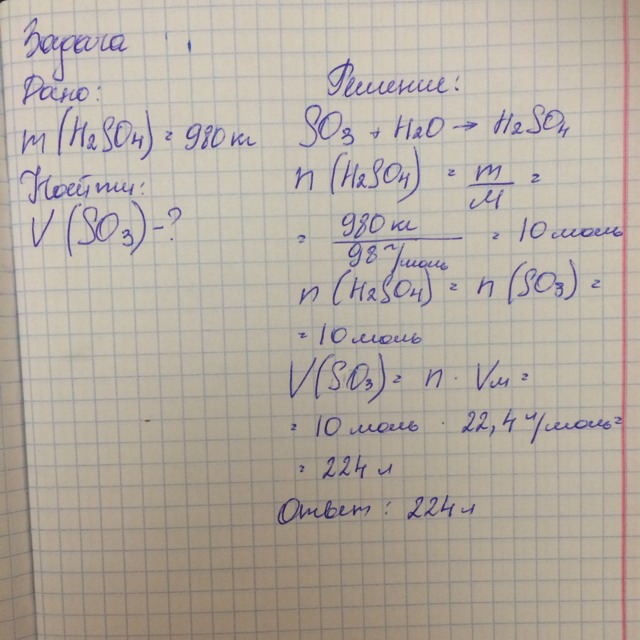 Задача
Дано:
m(H2SO4) = 980 кг
Найти:
V(SO3) - ?
Решение:
SO3 + H2O → H2SO4
n(H2SO4) = m/M =
= 980 кг / 98 г/моль = 10 моль
n(H2SO4) = n(SO3) =
= 10 моль
V(SO3) = n · Vм =
= 10 моль · 22,4 л/моль =
= 224 л
Ответ: 224 л